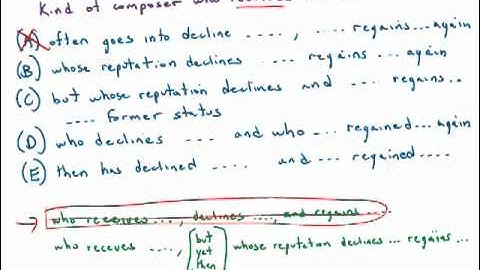 Kind of composer who
(A) often goes into decline ...., .... regains... again
(B) whose reputation declines .... regains ... again
(C) but whose reputation declines and .... regains...
.... former status
(D) who declines .... and who ... regained... again
(E) then has declined .... and ... regained ....
→ who receives ..., declines ...., and regains ....
who receves ...., (but yet then) whose reputation declines ... regains ...